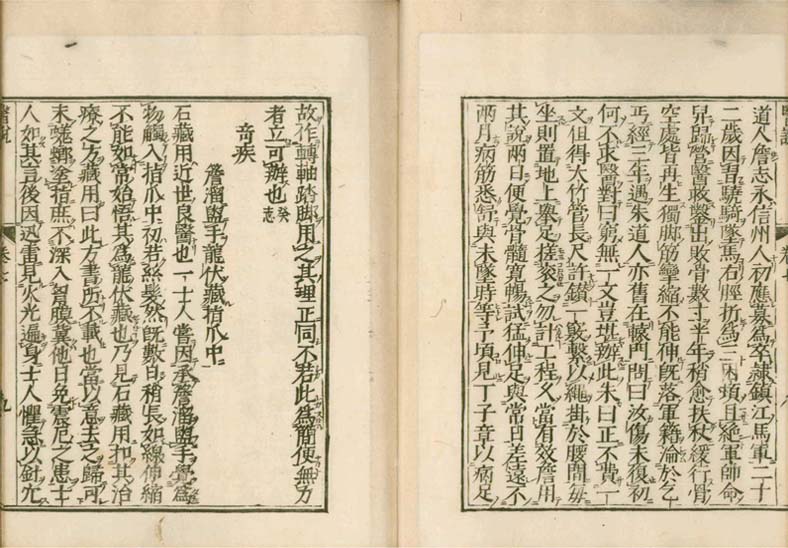 道人詹志永信州人初應募爲卒隷鎮江馬軍二十
二歲因習驍騎墜馬右脛折爲三困頓且絶軍師命
舁歸營醫救鑿出敗骨數寸半年稍愈扶杖緩行骨
空處皆再生獨脚筋攣縮不能伸旣落軍籍淪於乞
丐經三年遇朱道人亦舊在轅門問曰汝傷未復初
何不求醫對曰窮無一文豈堪辦此朱曰正不費一
文但得大竹管長尺許鑚一竅繫以繩掛於腰間每
坐則置地上舉足搓滾之勿計工程久當有效詹用
其說兩日便覺骨髓寬暢試猛伸足與常日差遠不
兩月病筋悉舒與未墜時等予頃見丁子章以病足
故作轉軸踏脚用之其理正同不若此爲簡便無力
者立可辦也癸志
奇疾
簷溜盥手龍伏藏指爪中
石藏用近世良醫也一士人嘗因承簷溜盥手覺爲
物觸入指爪中初若絲髮然旣數日稍長如線伸縮
不能如常始悟其爲龍伏藏也乃見石藏用扣其治
療之方藏用曰此方書所不載也當以意去之歸可
末蜣蜋塗指庶不深入胷膜冀他日免震厄之患士
人如其言後因迅雷見火光遍身士人懼急以針穴